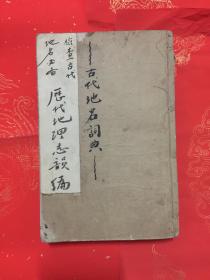 古代地名詞典
檢查古代
地名
歷代地理志韻編